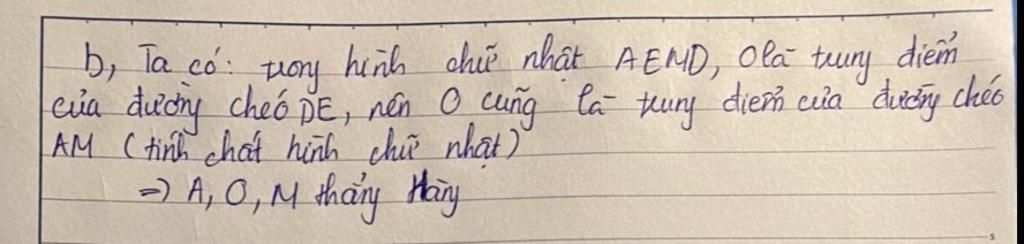 b, Ta có: trong hình chữ nhật AEMD, O là trung điểm
của đường chéo DE, nên O cũng là trung điểm của đường chéo
AM (tính chất hình chữ nhật)
=> A, O, M thẳng hàng